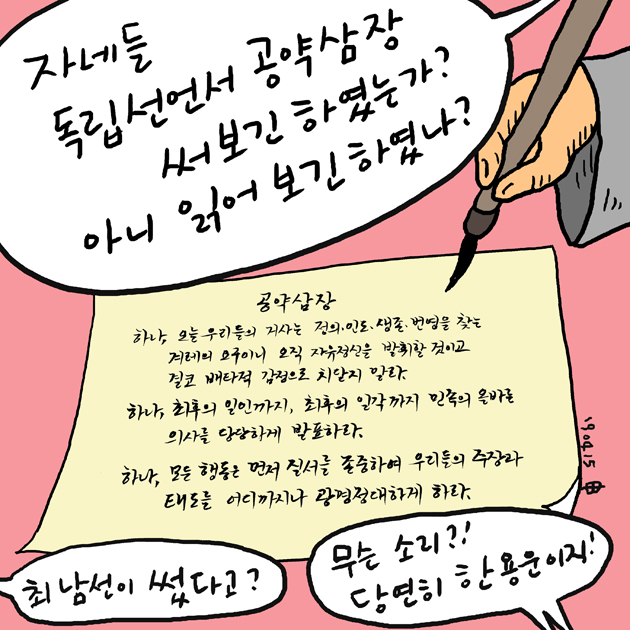 자네들
독립선언서 공약삼장
써보긴 하였는가?
아니 읽어 보긴 하였나?
공약삼장
하나, 오늘 우리들의 거사는 정의·인도·생존·번영을 찾는
겨레의 요구이니 오직 자유정신을 발휘할 것이고
결코 배타적 감정으로 치닫지 말라.
하나, 최후의 일인까지, 최후의 일각까지 민족의 올바른
의사를 당당하게 발표하라.
하나, 모든 행동은 먼저 질서를 존중하여 우리들의 주장과
태도를 어디까지나 광명정대하게 하라.
'19.04.15
최남선이 썼다고?
무슨 소리?!
당연히 한용운이지!